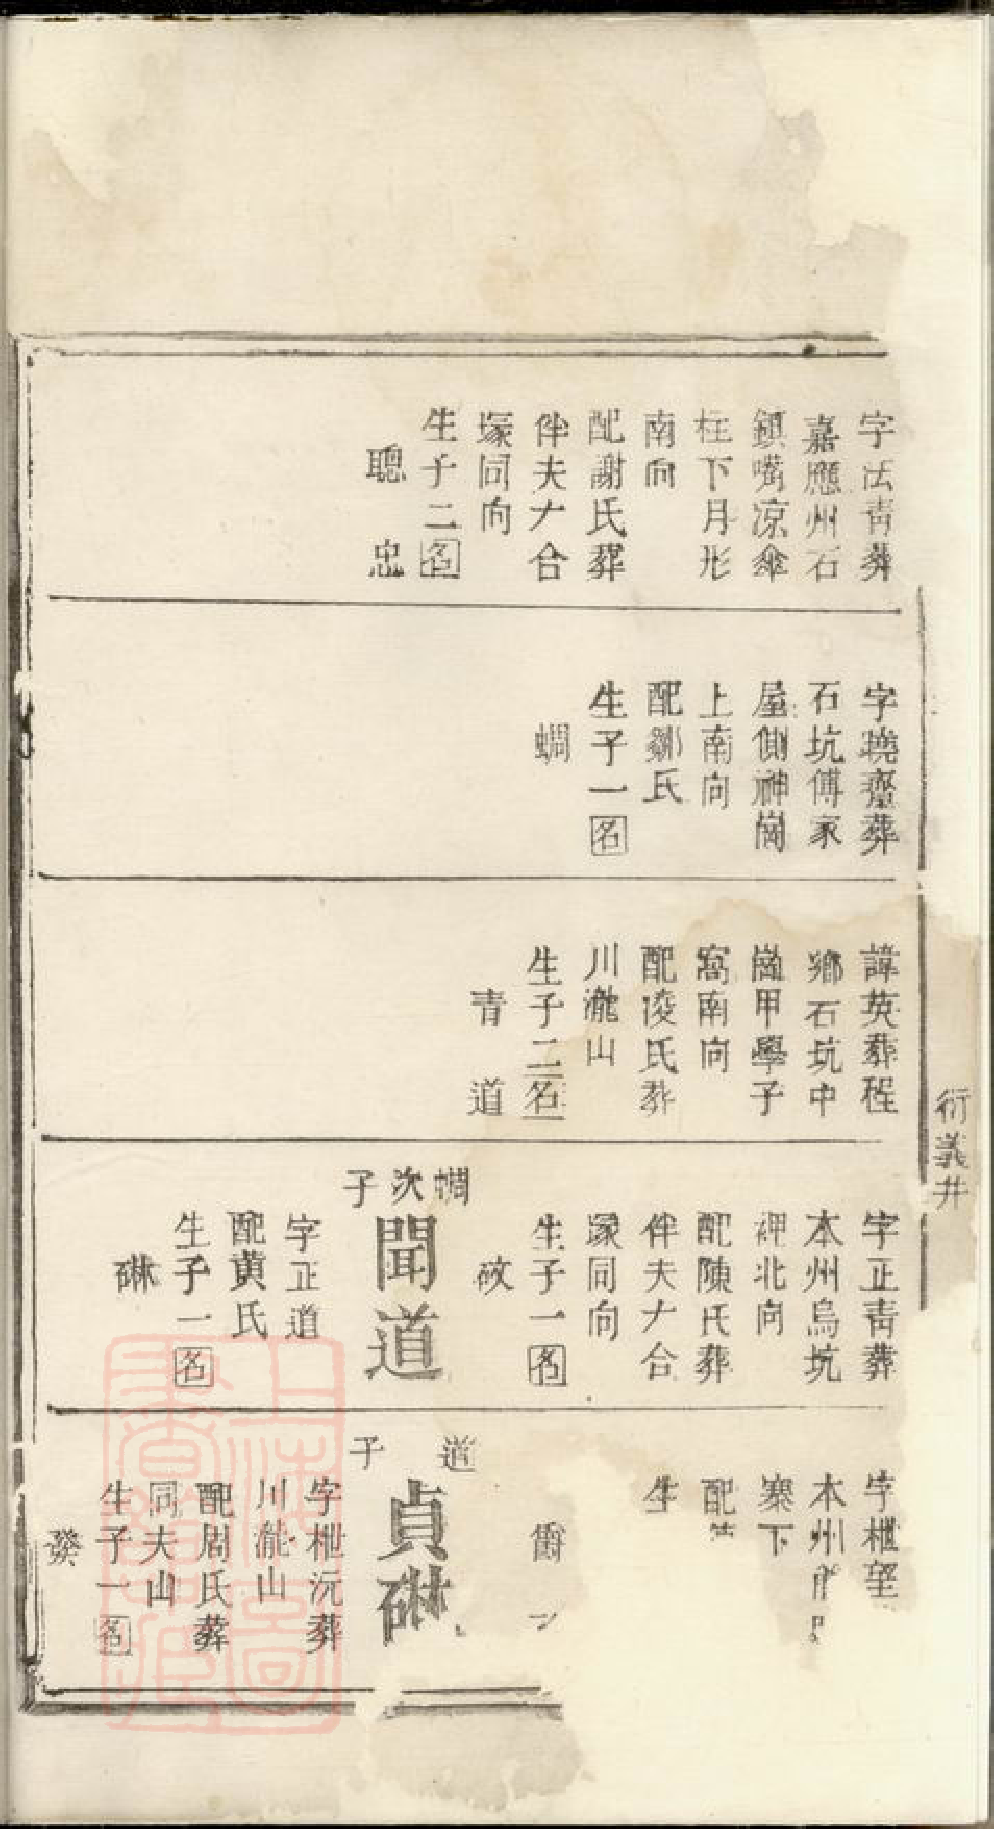 字法青葬
嘉應州石
鎮嘴凉傘
柱下月形
南向
配謝氏葬
伴夫ナ合
塚同向
生子二名
聰 忠
字曉齋葬
石坑傅家
屋側神崗
上南向
配鄒氏
生子一名
蜩
諱英葬程
鄉石坑中
崗甲學子
窩南向
配凌氏葬
川瀧山
生子二名
青 道
字正青葬
本州烏坑
裡北向
配陳氏葬
伴夫ナ合
塚同向
生子一名
蜩次子
聞道
字正道
配黄氏
生子一名
碄
字樾望
本州
寨下
配
生
爵
道 子
貞碄
字樾沅葬
川瀧山
配周氏葬
同夫山
生子一名
發
衍義井